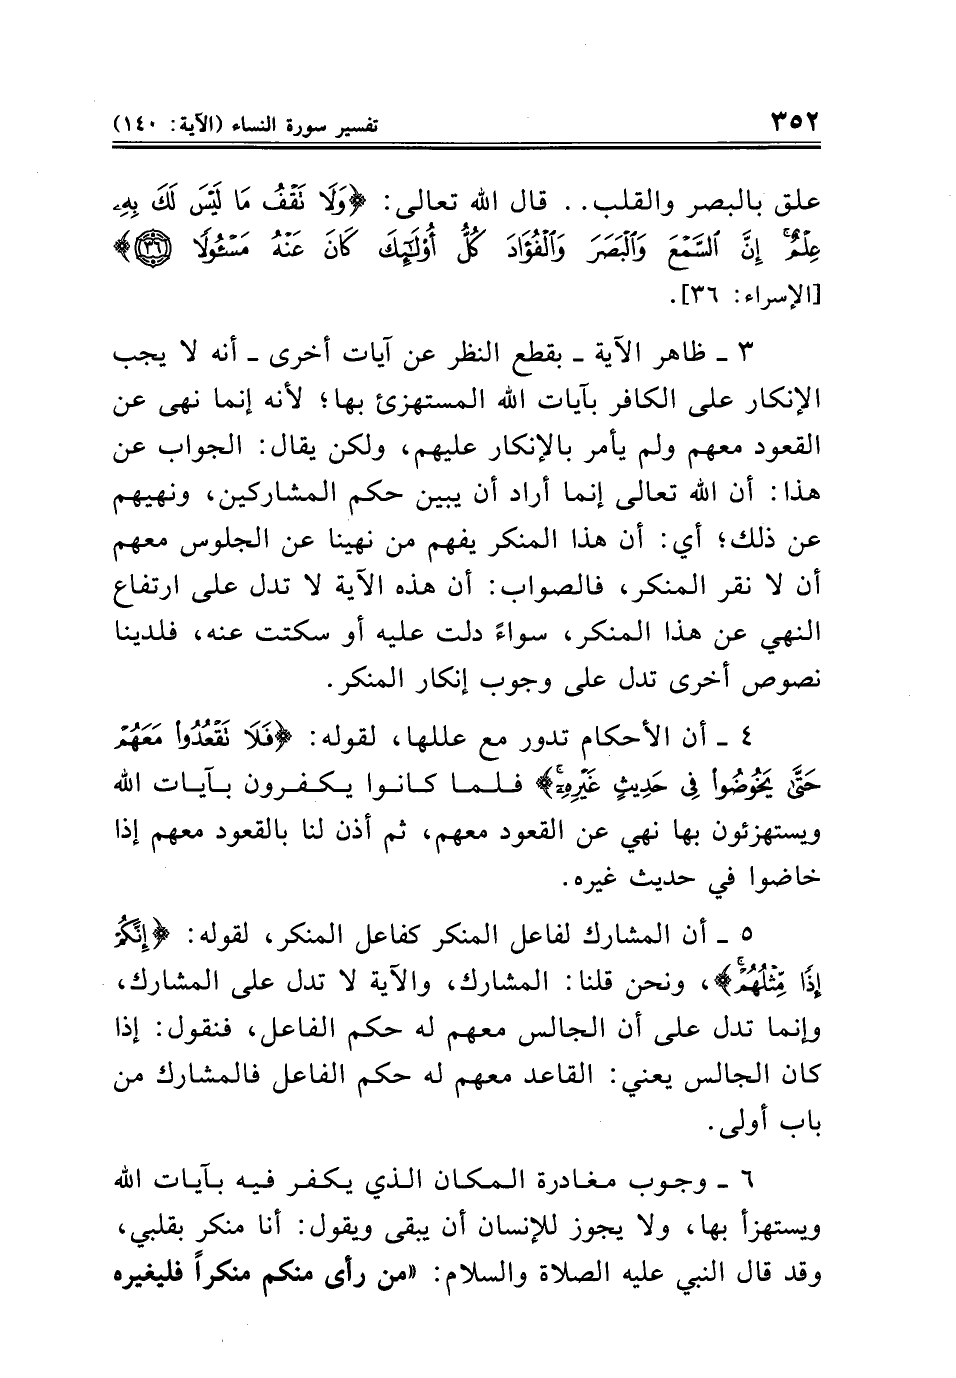 ٣٥٢
تفسير سورة النساء (الآية: ١٤٠)
علق بالبصر والقلب.. قال الله تعالى: ﴿وَلَا تَقْفُ مَا لَيْسَ لَكَ بِهِۦ
عِلْمٌ ۚ إِنَّ ٱلسَّمْعَ وَٱلْبَصَرَ وَٱلْفُؤَادَ كُلُّ أُو۟لَٰٓئِكَ كَانَ عَنْهُ مَسْـُٔولًا ٣٦﴾
[الإسراء: ٣٦].
٣ ـ ظاهر الآية ـ بقطع النظر عن آيات أخرى ـ أنه لا يجب
الإنكار على الكافر بآيات الله المستهزئ بها؛ لأنه إنما نهى عن
القعود معهم ولم يأمر بالإنكار عليهم، ولكن يقال: الجواب عن
هذا: أن الله تعالى إنما أراد أن يبين حكم المشاركين، ونهيهم
عن ذلك؛ أي: أن هذا المنكر يفهم من نهينا عن الجلوس معهم
أن لا نقر المنكر، فالصواب: أن هذه الآية لا تدل على ارتفاع
النهي عن هذا المنكر، سواءً دلت عليه أو سكتت عنه، فلدينا
نصوص أخرى تدل على وجوب إنكار المنكر.
٤ ـ أن الأحكام تدور مع عللها، لقوله: ﴿فَلَا تَقْعُدُوا۟ مَعَهُمْ
حَتَّىٰ يَخُوضُوا۟ فِى حَدِيثٍ غَيْرِهِۦٓ ۚ﴾ فلما كانوا يكفرون بآيات الله
ويستهزئون بها نهي عن القعود معهم، ثم أذن لنا بالقعود معهم إذا
خاضوا في حديث غيره.
٥ ـ أن المشارك لفاعل المنكر كفاعل المنكر، لقوله: ﴿إِنَّكُمْ
إِذًا مِّثْلُهُمْ ۗ﴾، ونحن قلنا: المشارك، والآية لا تدل على المشارك،
وإنما تدل على أن الجالس معهم له حكم الفاعل، فنقول: إذا
كان الجالس يعني: القاعد معهم له حكم الفاعل فالمشارك من
باب أولى.
٦ ـ وجوب مغادرة المكان الذي يكفر فيه بآيات الله
ويستهزأ بها، ولا يجوز للإنسان أن يبقى ويقول: أنا منكر بقلبي،
وقد قال النبي عليه الصلاة والسلام: «من رأى منكم منكراً فليغيره